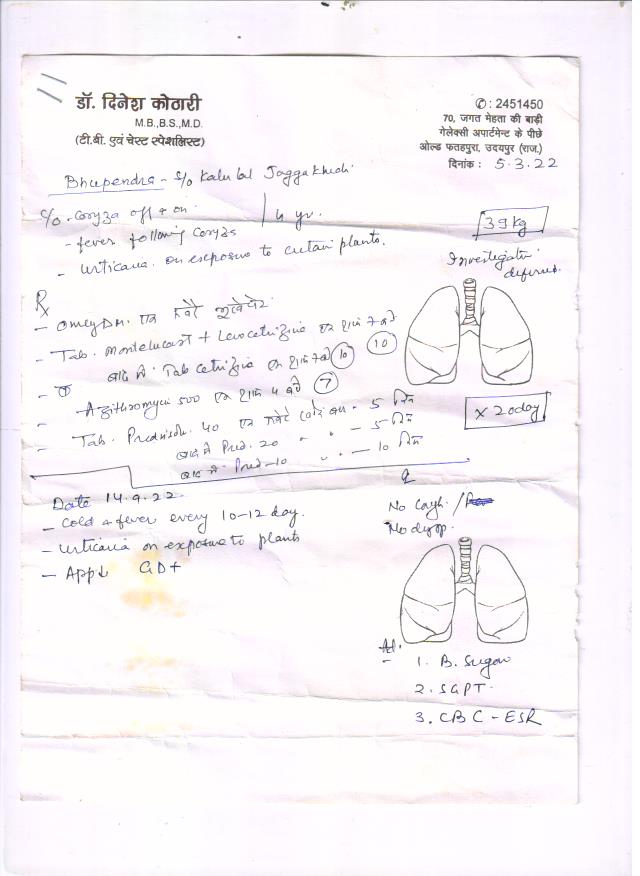 डॉ. दिनेश कोठारी
M.B.,B.S.,M.D.
(टी.बी. एवं चेस्ट स्पेशलिस्ट)
✆ : 2451450
70, जगत मेहता की बाड़ी
गेलेक्सी अपार्टमेन्ट के पीछे
ओल्ड फतहपुरा, उदयपुर (राज.)
दिनांक : 5.3.22
Bhupendra - S/o Kalu lal Jaggakhedi
C/o - Coryza off & on 4 yr. 39 kg
- fever following Coryza
- Urticaria on exposure to certain plants.
Investigation deferred
Rx
- Omey DM. एक
- Tab. Montelucast + Levocetrizine एक शाम 7 बजे (10)
बाद में Tab cetrizine एक शाम 7 बजे (10)
- Azithromycin 500 एक शाम 4 बजे (7)
- Tab. Prednisolo. 40 एक - 5 दिन
बाद में Pred. 20 " " - 5 दिन
बाद में Pred-10 " " - 10 दिन
x 20 day
Date 14.9.22.
- Cold & fever every 10-12 day.
- Urticaria on exposure to plants
- App↓ GD+
No Cough. /
No dysp.
Ad.
1. B. Sugar
2. SGPT.
3. CBC - ESR